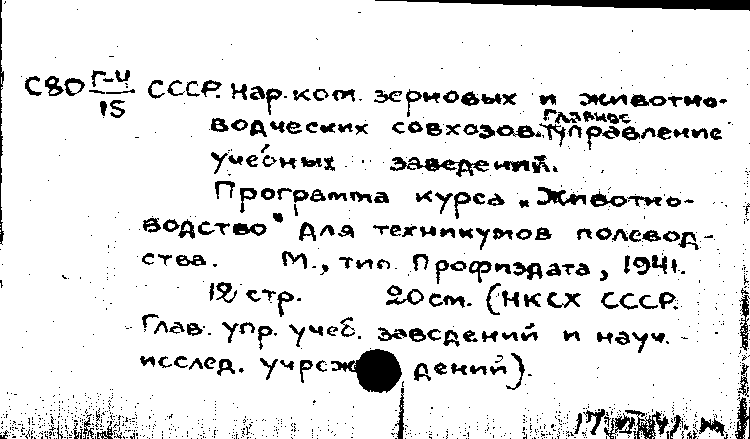 С80 Г-4/15 СССР. Нар. ком. зерновых и животно-
водческих совхозов. Главное управление
учебных заведений.
Программа курса „Животно-
водство" для техникумов полевод-
ства. М., тип. Профиздата, 1941.
12 стр. 20 см. (НКСХ СССР.
Глав. упр. учеб. заведений и науч.
исслед. учреждений).